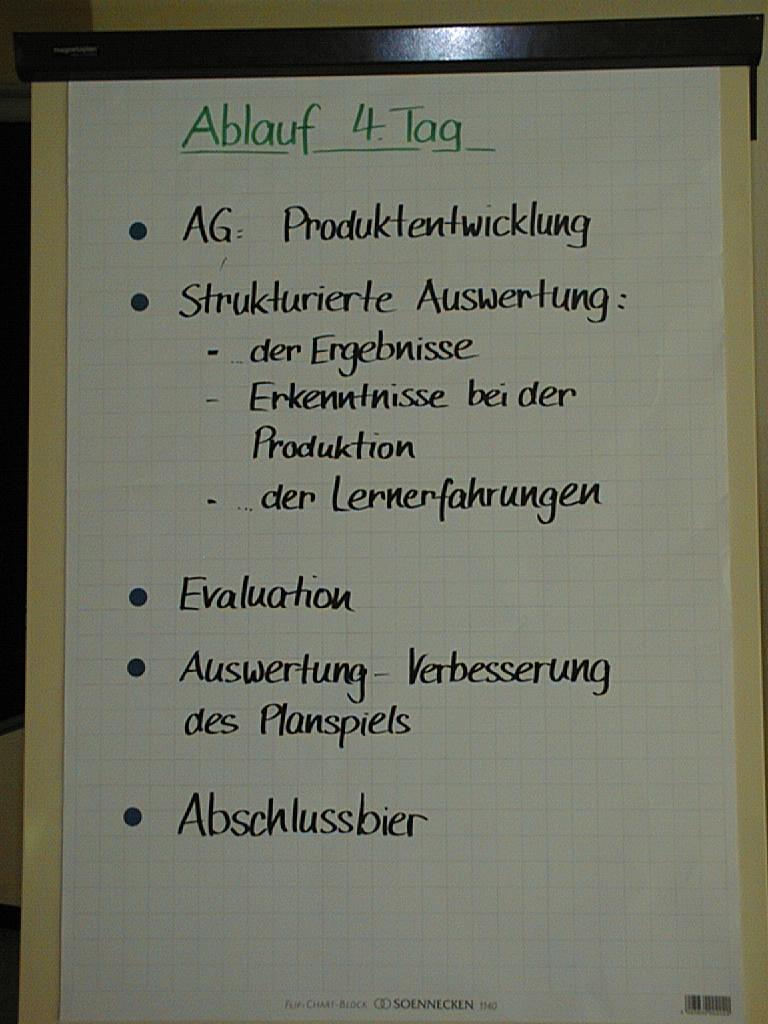 magnetoplan
Ablauf 4. Tag
• AG: Produktentwicklung
• Strukturierte Auswertung:
- ... der Ergebnisse
- Erkenntnisse bei der
Produktion
- ... der Lernerfahrungen
• Evaluation
• Auswertung - Verbesserung
des Planspiels
• Abschlussbier
FLIP-CHART-BLOCK SOENNECKEN 1140